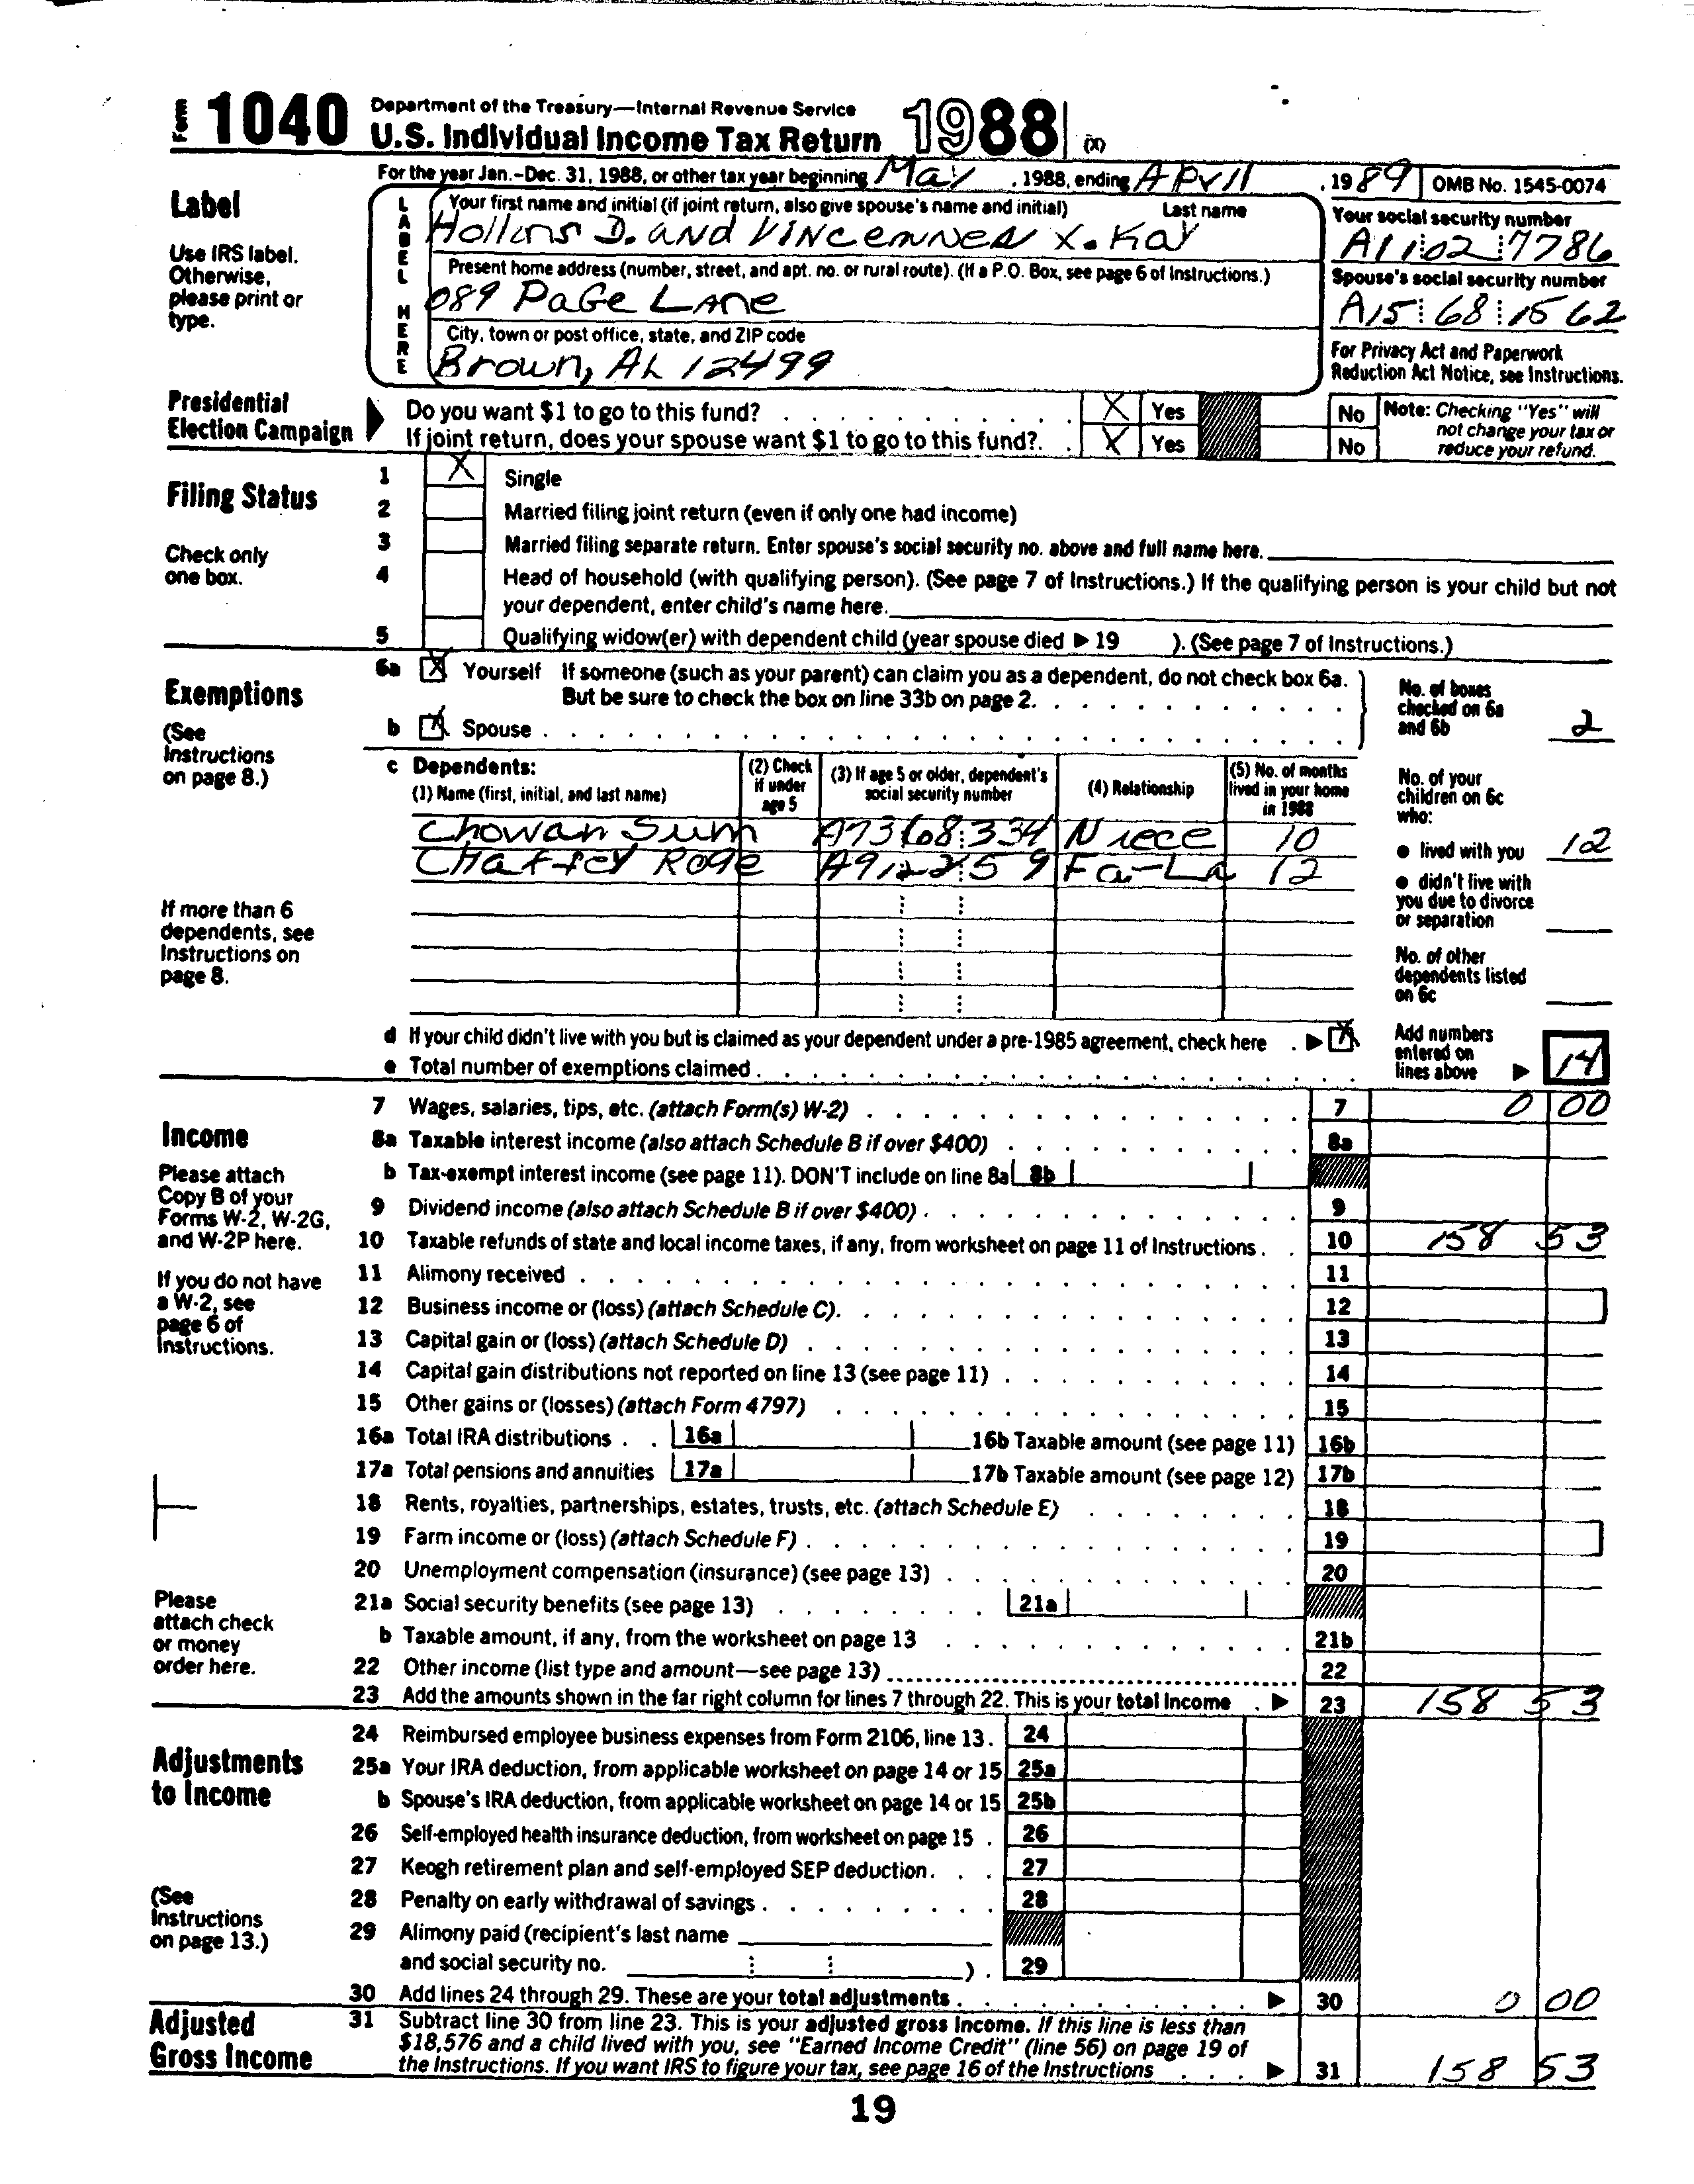 Form 1040 Department of the Treasury—Internal Revenue Service
U.S. Individual Income Tax Return 1988 (X)
For the year Jan.-Dec. 31, 1988, or other tax year beginning May , 1988, ending April , 19 89 OMB No. 1545-0074
Label
Use IRS label. Otherwise, please print or type.
LABEL HERE
Your first name and initial (if joint return, also give spouse's name and initial) Last name
Hollins D. and Vincennes X. Kay
Your social security number
A11 02 7786
Present home address (number, street, and apt. no. or rural route). (If a P.O. Box, see page 6 of Instructions.)
089 Page Lane
Spouse's social security number
A15 68 1562
City, town or post office, state, and ZIP code
Brown, AL 12499
For Privacy Act and Paperwork Reduction Act Notice, see Instructions.
Presidential Election Campaign
Do you want $1 to go to this fund? X Yes No
If joint return, does your spouse want $1 to go to this fund? X Yes No
Note: Checking "Yes" will not change your tax or reduce your refund.
Filing Status
Check only one box.
1 X Single
2 Married filing joint return (even if only one had income)
3 Married filing separate return. Enter spouse's social security no. above and full name here.
4 Head of household (with qualifying person). (See page 7 of Instructions.) If the qualifying person is your child but not
your dependent, enter child's name here.
5 Qualifying widow(er) with dependent child (year spouse died ▶ 19 ). (See page 7 of Instructions.)
Exemptions
(See Instructions on page 8.)
6a X Yourself If someone (such as your parent) can claim you as a dependent, do not check box 6a.
But be sure to check the box on line 33b on page 2.
b X Spouse
No. of boxes checked on 6a and 6b 2
c Dependents:
(1) Name (first, initial, and last name) (2) Check if under age 5 (3) If age 5 or older, dependent's social security number (4) Relationship (5) No. of months lived in your home in 1988
Chowan Sum A73 68 334 Niece 10
Chaffey Roge Fa-La 12
No. of your children on 6c who:
● lived with you 12
● didn't live with you due to divorce or separation
No. of other dependents listed on 6c
If more than 6 dependents, see Instructions on page 8.
d If your child didn't live with you but is claimed as your dependent under a pre-1985 agreement, check here ▶ X
e Total number of exemptions claimed
Add numbers entered on lines above ▶ 14
Income
Please attach Copy B of your Forms W-2, W-2G, and W-2P here.
If you do not have a W-2, see page 6 of Instructions.
7 Wages, salaries, tips, etc. (attach Form(s) W-2) 7 0 00
8a Taxable interest income (also attach Schedule B if over $400) 8a
b Tax-exempt interest income (see page 11). DON'T include on line 8a 8b
9 Dividend income (also attach Schedule B if over $400) 9
10 Taxable refunds of state and local income taxes, if any, from worksheet on page 11 of Instructions 10 158 53
11 Alimony received 11
12 Business income or (loss) (attach Schedule C) 12
13 Capital gain or (loss) (attach Schedule D) 13
14 Capital gain distributions not reported on line 13 (see page 11) 14
15 Other gains or (losses) (attach Form 4797) 15
16a Total IRA distributions 16a 16b Taxable amount (see page 11) 16b
17a Total pensions and annuities 17a 17b Taxable amount (see page 12) 17b
18 Rents, royalties, partnerships, estates, trusts, etc. (attach Schedule E) 18
19 Farm income or (loss) (attach Schedule F) 19
20 Unemployment compensation (insurance) (see page 13) 20
21a Social security benefits (see page 13) 21a
b Taxable amount, if any, from the worksheet on page 13 21b
22 Other income (list type and amount—see page 13) 22
23 Add the amounts shown in the far right column for lines 7 through 22. This is your total income ▶ 23 158 53
Please attach check or money order here.
Adjustments to Income
(See Instructions on page 13.)
24 Reimbursed employee business expenses from Form 2106, line 13. 24
25a Your IRA deduction, from applicable worksheet on page 14 or 15 25a
b Spouse's IRA deduction, from applicable worksheet on page 14 or 15 25b
26 Self-employed health insurance deduction, from worksheet on page 15 26
27 Keogh retirement plan and self-employed SEP deduction 27
28 Penalty on early withdrawal of savings 28
29 Alimony paid (recipient's last name
and social security no. ) 29
30 Add lines 24 through 29. These are your total adjustments ▶ 30 0 00
Adjusted Gross Income
31 Subtract line 30 from line 23. This is your adjusted gross income. If this line is less than
$18,576 and a child lived with you, see "Earned Income Credit" (line 56) on page 19 of
the Instructions. If you want IRS to figure your tax, see page 16 of the Instructions ▶ 31 158 53
19